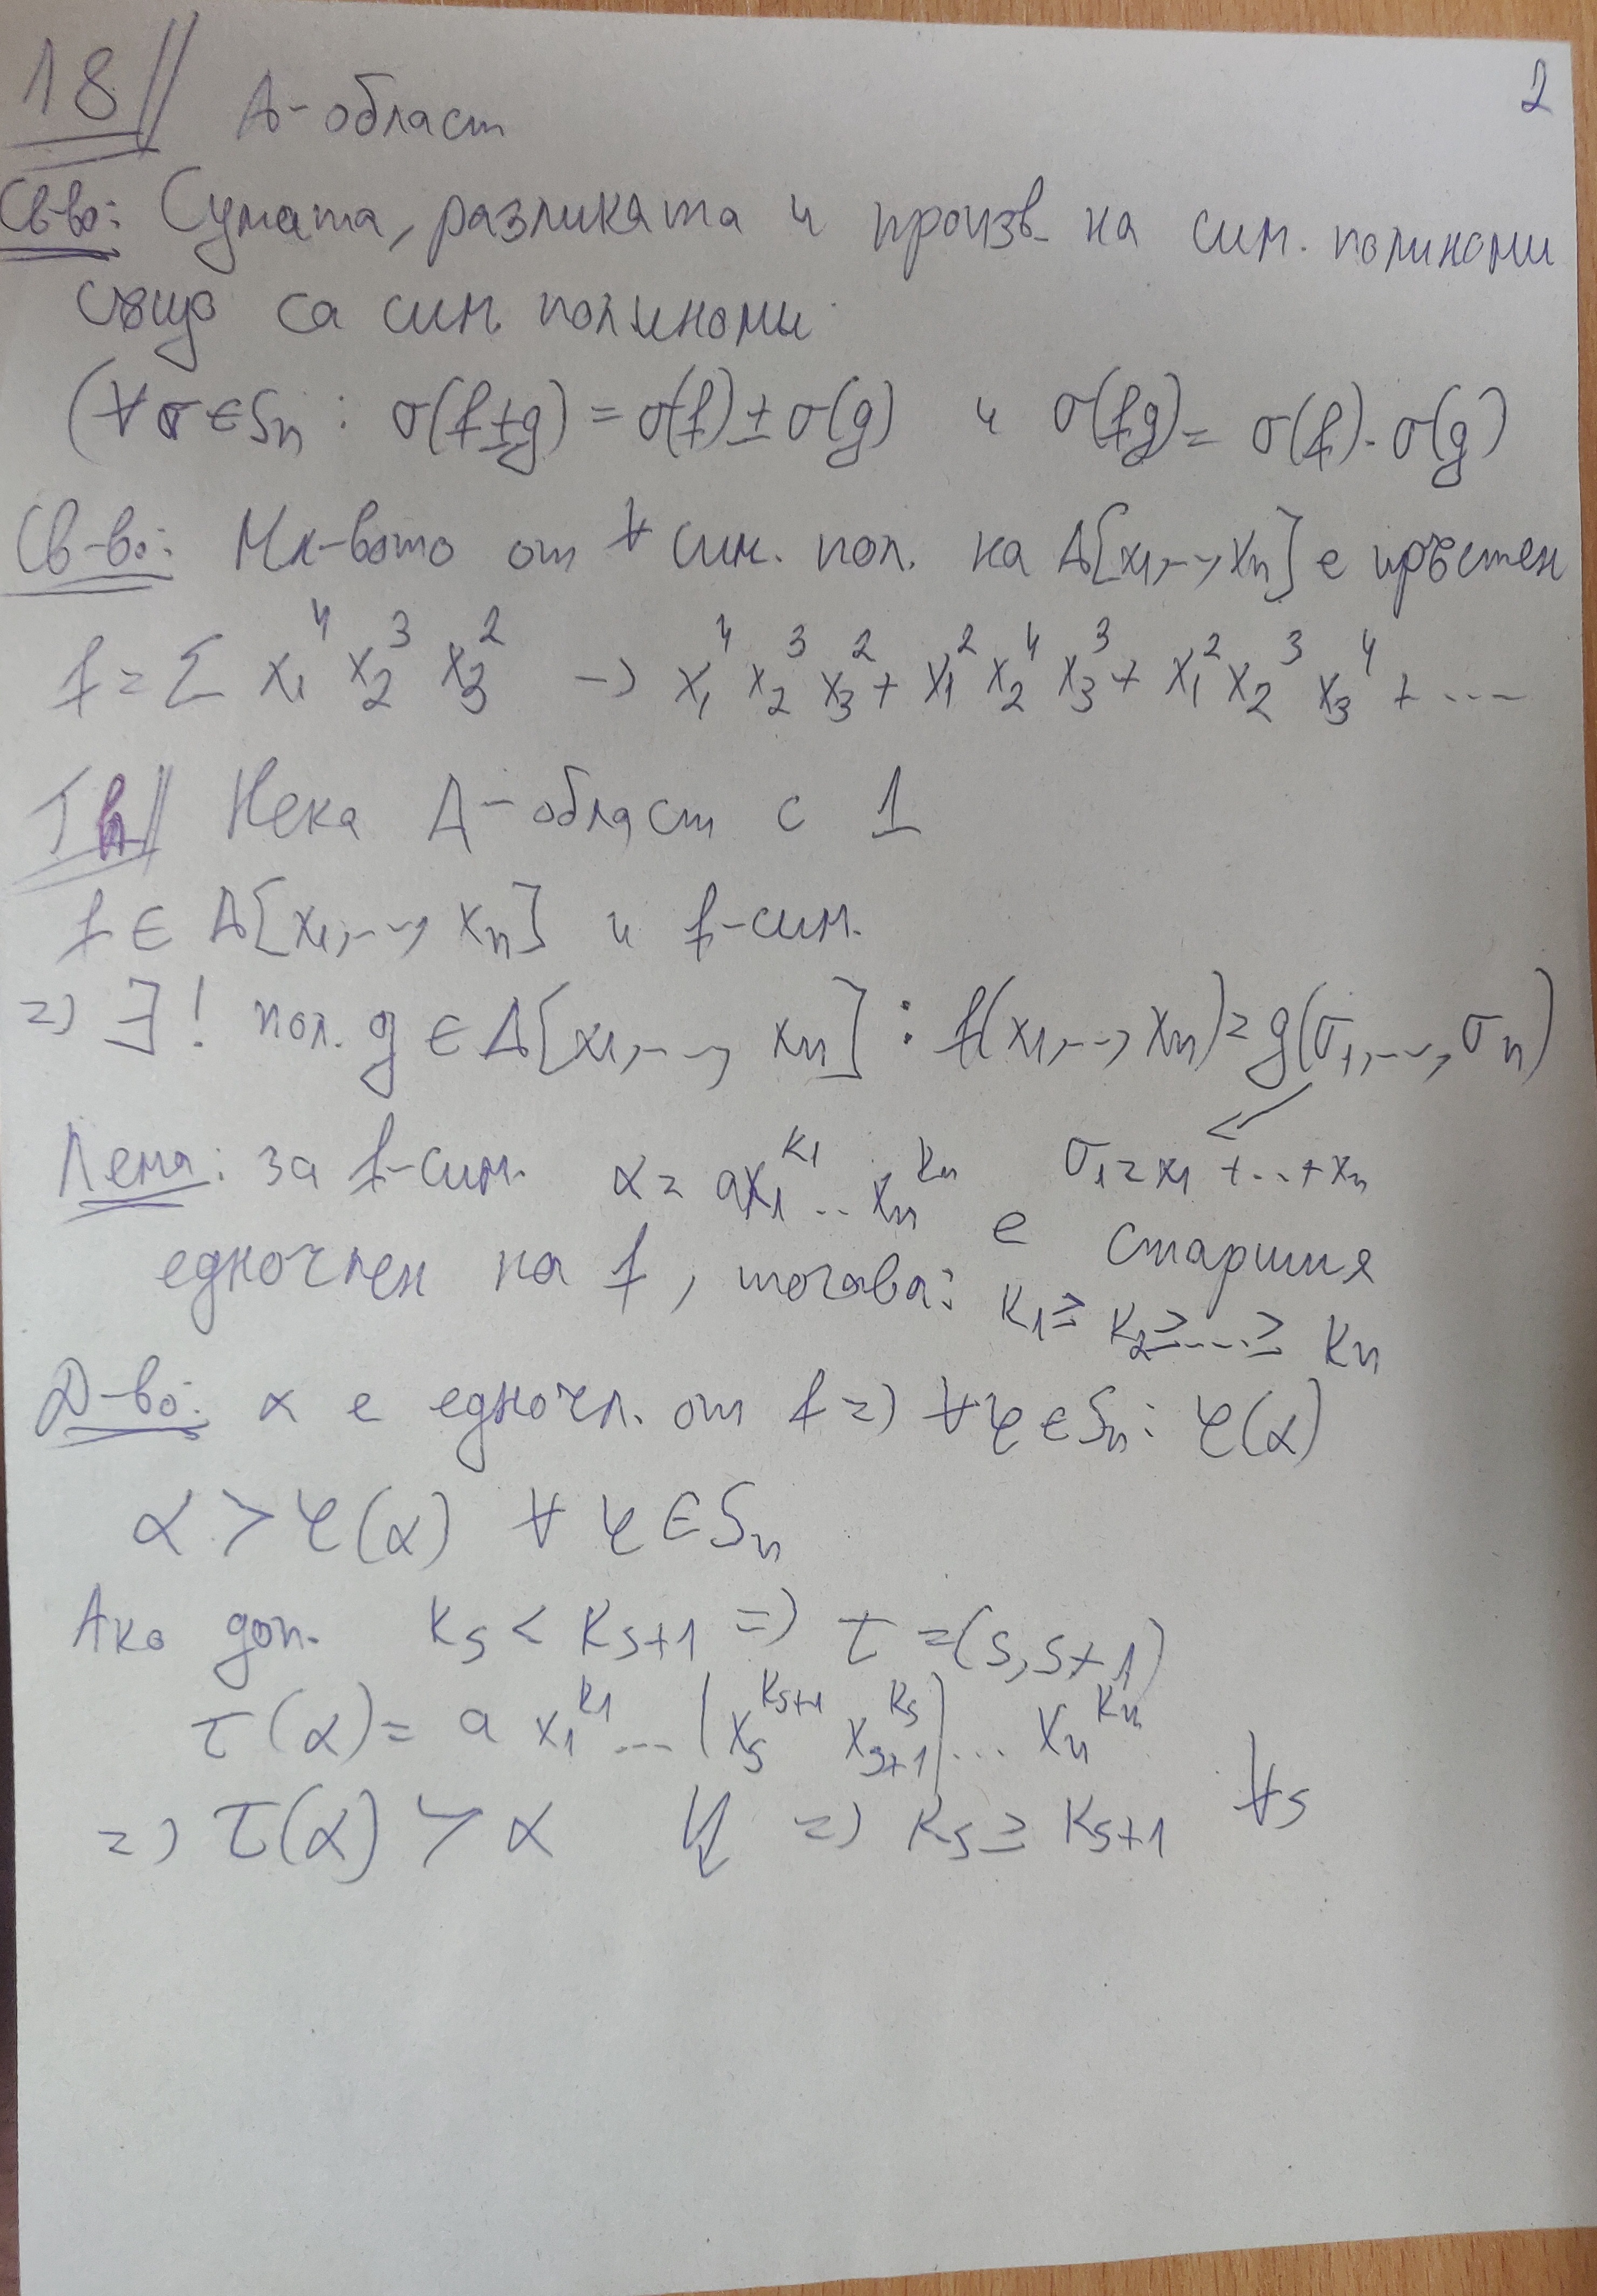 2
18// A-област
Св-во: Сумата, разликата и произв. на сим. полиноми
също са сим. полиноми
(∀σ∈Sₙ : σ(f±g) = σ(f)±σ(g) и σ(fg) = σ(f)·σ(g)
Св-во: Мн-вото от ∀ сим. пол. на A[x₁,..,xₙ] е пръстен
f = Σ x₁⁴ x₂³ x₃² → x₁⁴ x₂³ x₃² + x₁² x₂⁴ x₃³ + x₁² x₂³ x₃⁴ + ...
Th// Нека A-област с 1
f ∈ A[x₁,..,xₙ] и f-сим.
=> ∃! пол. g ∈ A[x₁,..., xₙ] : f(x₁,..,xₙ) = g(σ₁,..,σₙ)
σ₁ = x₁ + ... + xₙ
Лема: за f-сим. α = ax₁^k₁ .. xₙ^kₙ е старшия
едночлен на f, тогава: k₁ ≥ k₂ ≥ ... ≥ kₙ
Д-во: α е едночл. от f => ∀φ∈Sₙ: φ(α)
α > φ(α) ∀ φ ∈ Sₙ
Ако доп. kₛ < kₛ₊₁ => τ = (s, s+1)
τ(α) = a x₁^k₁ ... (xₛ^kₛ₊₁ xₛ₊₁^kₛ) ... xₙ^kₙ
=> τ(α) > α ↯ => kₛ ≥ kₛ₊₁ ∀s